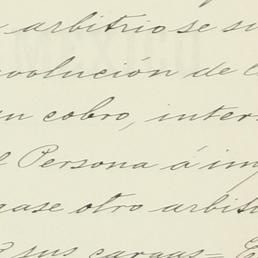 arbitrio se su
volución de l
un cobro, inter
l Persona á im
gase otro arbit
sus cargas = E